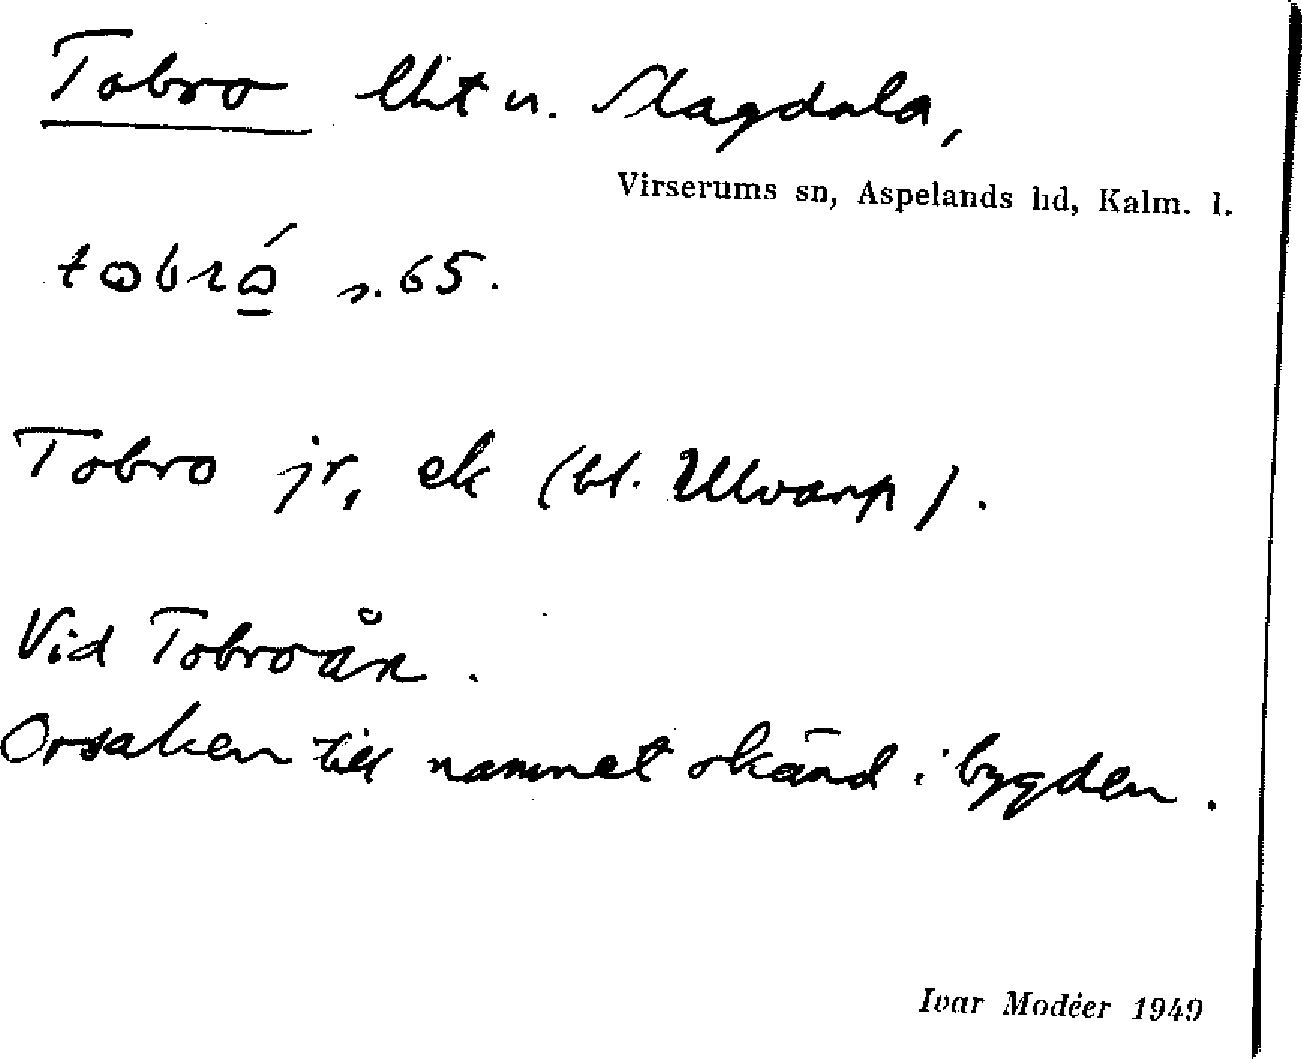 Tobro lht u. Magdala,
Virserums sn, Aspelands hd, Kalm. l.
tobró s. 65.
Tobro jr, ek (bl. Ulvarp).
Vid Tobroån.
Orsaken till namnet okänd i bygden.
Ivar Modéer 1949